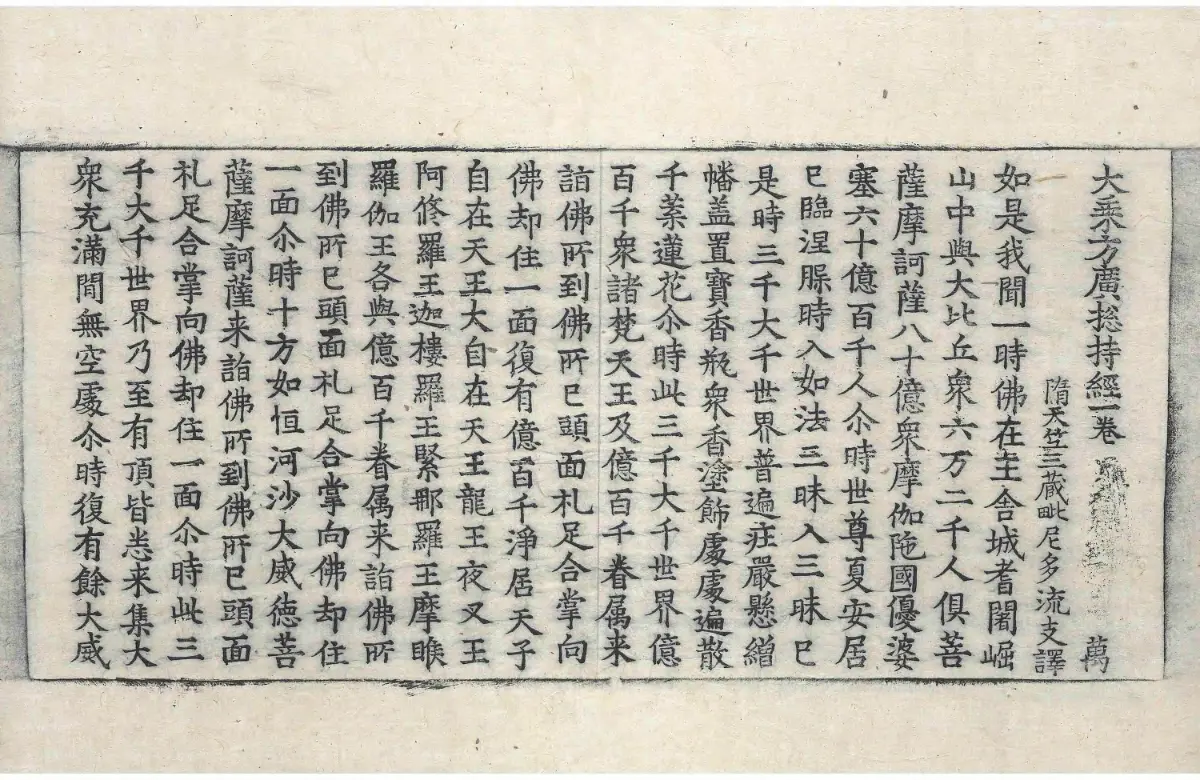 大乘方廣捴持經一卷 萬
隋天竺三藏毗尼多流支譯
如是我聞一時佛在王舍城耆闍崛
山中與大比丘衆六万二千人俱菩
薩摩訶薩八十億衆摩伽陁國優婆
塞六十億百千人尒時世尊夏安居
已臨涅槃時入如法三昧入三昧已
是時三千大千世界普遍疘嚴懸繒
幡盖置寶香瓶衆香塗飾處處遍散
千葉蓮花尒時此三千大千世界億
百千衆諸梵天王及億百千眷属来
詣佛所到佛所已頭面礼足合掌向
佛却住一面復有億百千淨居天子
自在天王大自在天王龍王夜叉王
阿修羅王迦樓羅王緊那羅王摩睺
羅伽王各與億百千眷属来詣佛所
到佛所已頭面礼足合掌向佛却住
一面尒時十方如恒河沙大威德菩
薩摩訶薩来詣佛所到佛所已頭面
礼足合掌向佛却住一面尒時此三
千大千世界乃至有頂皆悉来集大
衆充滿間無空處尒時復有餘大威